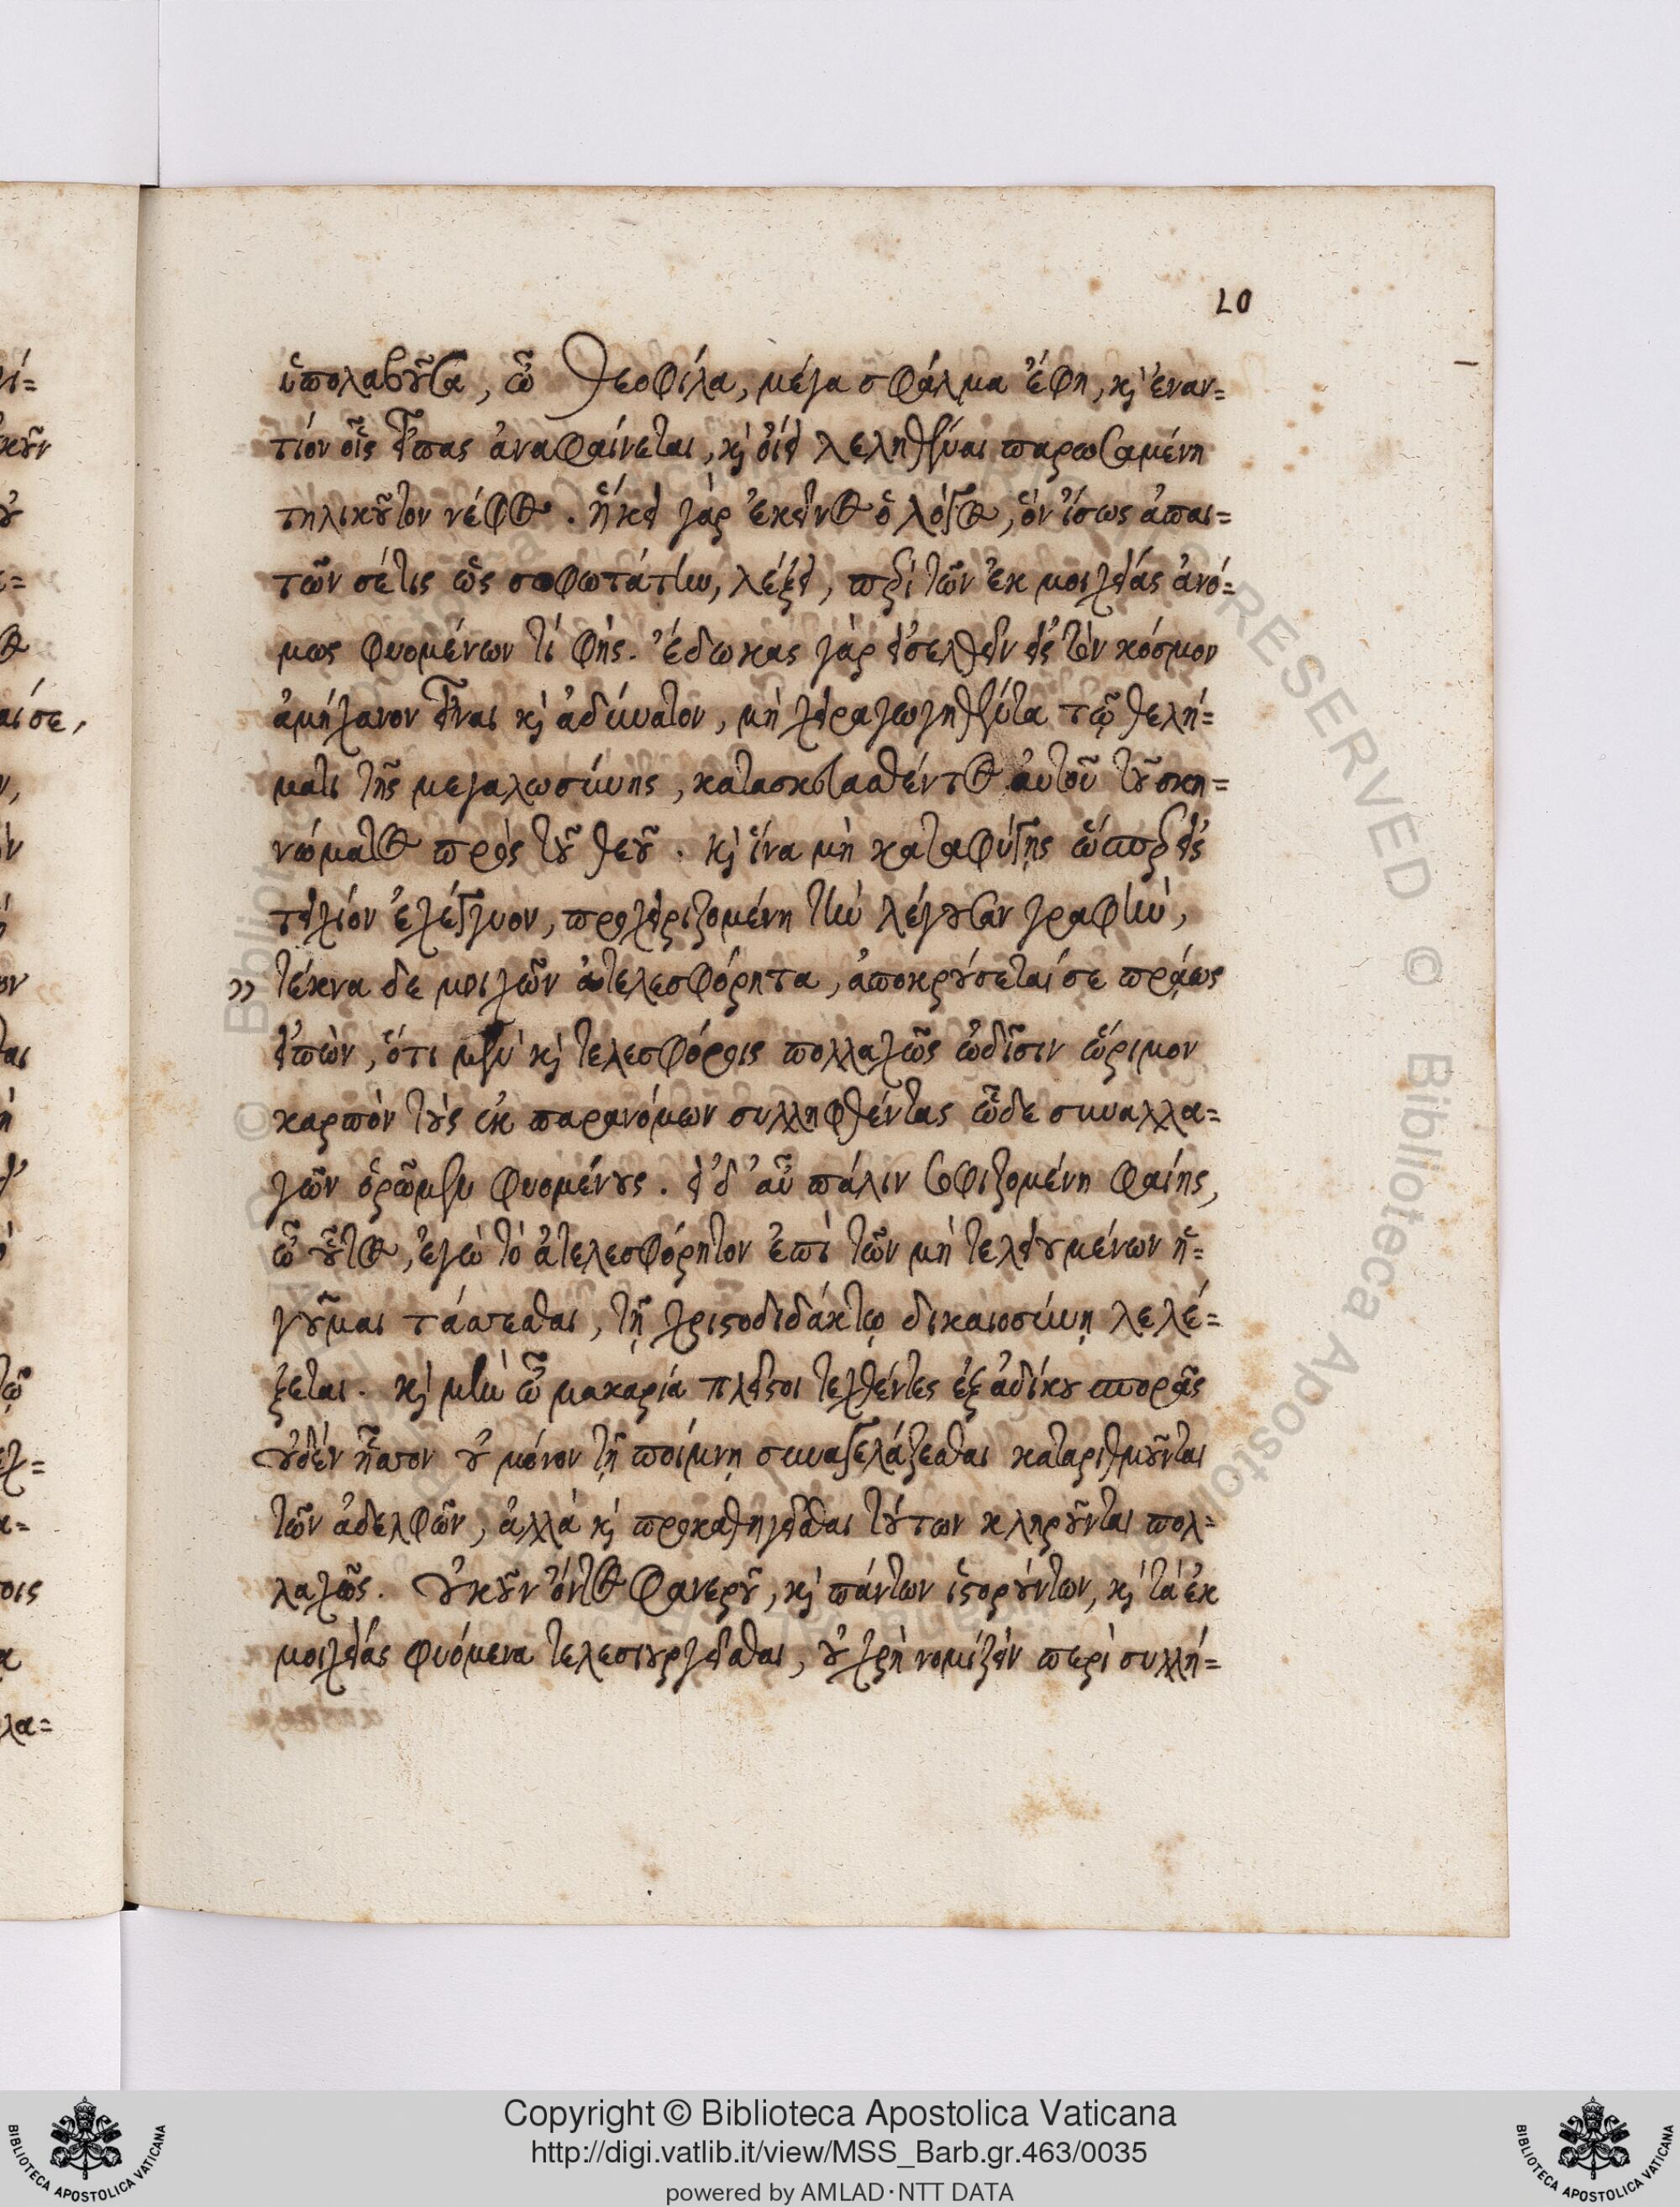 10
ὑπολαβοῦσα, ὦ Θεοφίλα, μέγα σφάλμα ἔφη, κỳ ἐναν=
τίον οἷς εἶπας ἀναφαίνεται, κỳ οἴει λεληθέναι παρωσαμένη
τηλικοῦτον νέφος. ἥκει γὰρ ἐκεῖνος ὁ λόγος, ὃν ἴσως ἀπαι=
τῶν σέ τις ὡς σοφωτάτην, λέξει, περὶ τῶν ἐκ μοιχείας ἀνό=
μως φυομένων τί φής. ἔδωκας γὰρ εἰσελθεῖν εἰς τὸν κόσμον
ἀμήχανον εἶναι κỳ ἀδύνατον, μὴ χειραγωγηθέντα τῷ θελή=
ματι τῆς μεγαλωσύνης, κατασκευασθέντος αὐτοῦ τοῦ σκη=
νώματος πρὸς τοῦ θεοῦ. κỳ ἵνα μὴ καταφύγῃς ὥσπερ εἰς
τειχίον ἐχέγγυον, προχειριζομένη τὴν λέγουσαν γραφὴν,
» τέκνα δε μοιχῶν ἀτελεσφόρητα, ἀποκρούσεταί σε πράως
εἰπὼν, ὅτι μὲν κỳ τελεσφόροις πολλαχῶς ὠδῖσιν ὥριμον
καρπὸν τοὺς ἐκ παρανόμων συλληφθέντας ὧδε συναλλα=
γῶν ὁρῶμεν φυομένους. εἰ δ' αὖ πάλιν σοφιζομένη φαίης,
ὦ οὗτος, ἐγὼ τὸ ἀτελεσφόρητον ἐπὶ τῶν μὴ τελειουμένων ἡ=
γοῦμαι τάσσεσθαι, τῇ χριστοδιδάκτῳ δικαιοσύνῃ λελέ=
ξεται. κỳ μὴν ὦ μακαρία πλεῖστοι τεχθέντες ἐξ ἀδίκου σπορᾶς
οὐδὲν ἧσσον οὐ μόνον τῇ ποίμνῃ συναγελάζεσθαι καταριθμοῦνται
τῶν ἀδελφῶν, ἀλλὰ κỳ προκαθηγεῖσθαι τούτων κληροῦνται πολ=
λαχῶς. οὐκοῦν ὄντος φανεροῦ, κỳ πάντων ἱστορούντων, κỳ τὰ ἐκ
μοιχείας φυόμενα τελεσιουργεῖσθαι, οὐ χρὴ νομίζειν περὶ συλλή=
Copyright © Biblioteca Apostolica Vaticana
http://digi.vatlib.it/view/MSS_Barb.gr.463/0035
powered by AMLAD·NTT DATA